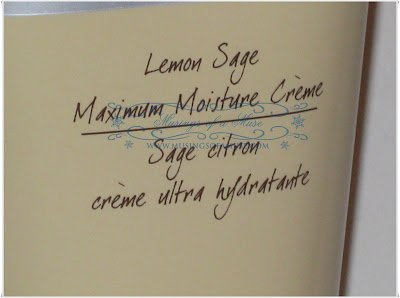 Lemon Sage
Maximum Moisture Crème
Musings of a Muse
www.musingsofamuse.com
Sage citron
crème ultra hydratante